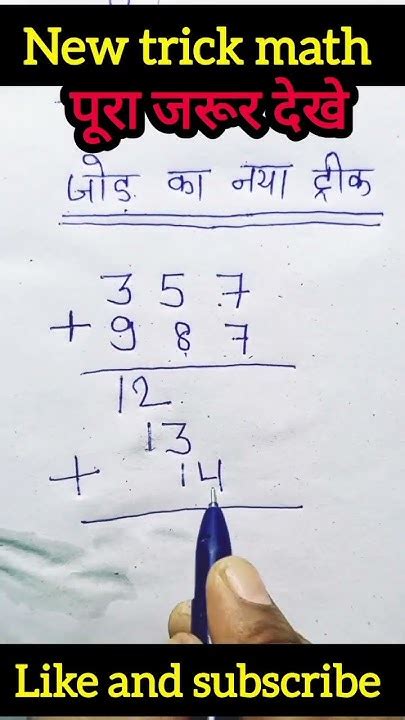 New trick math
पूरा जरूर देखे
जोड़ का नया ट्रीक
3 5 7
+ 9 8 7
12
13
+ 14
Like and subscribe